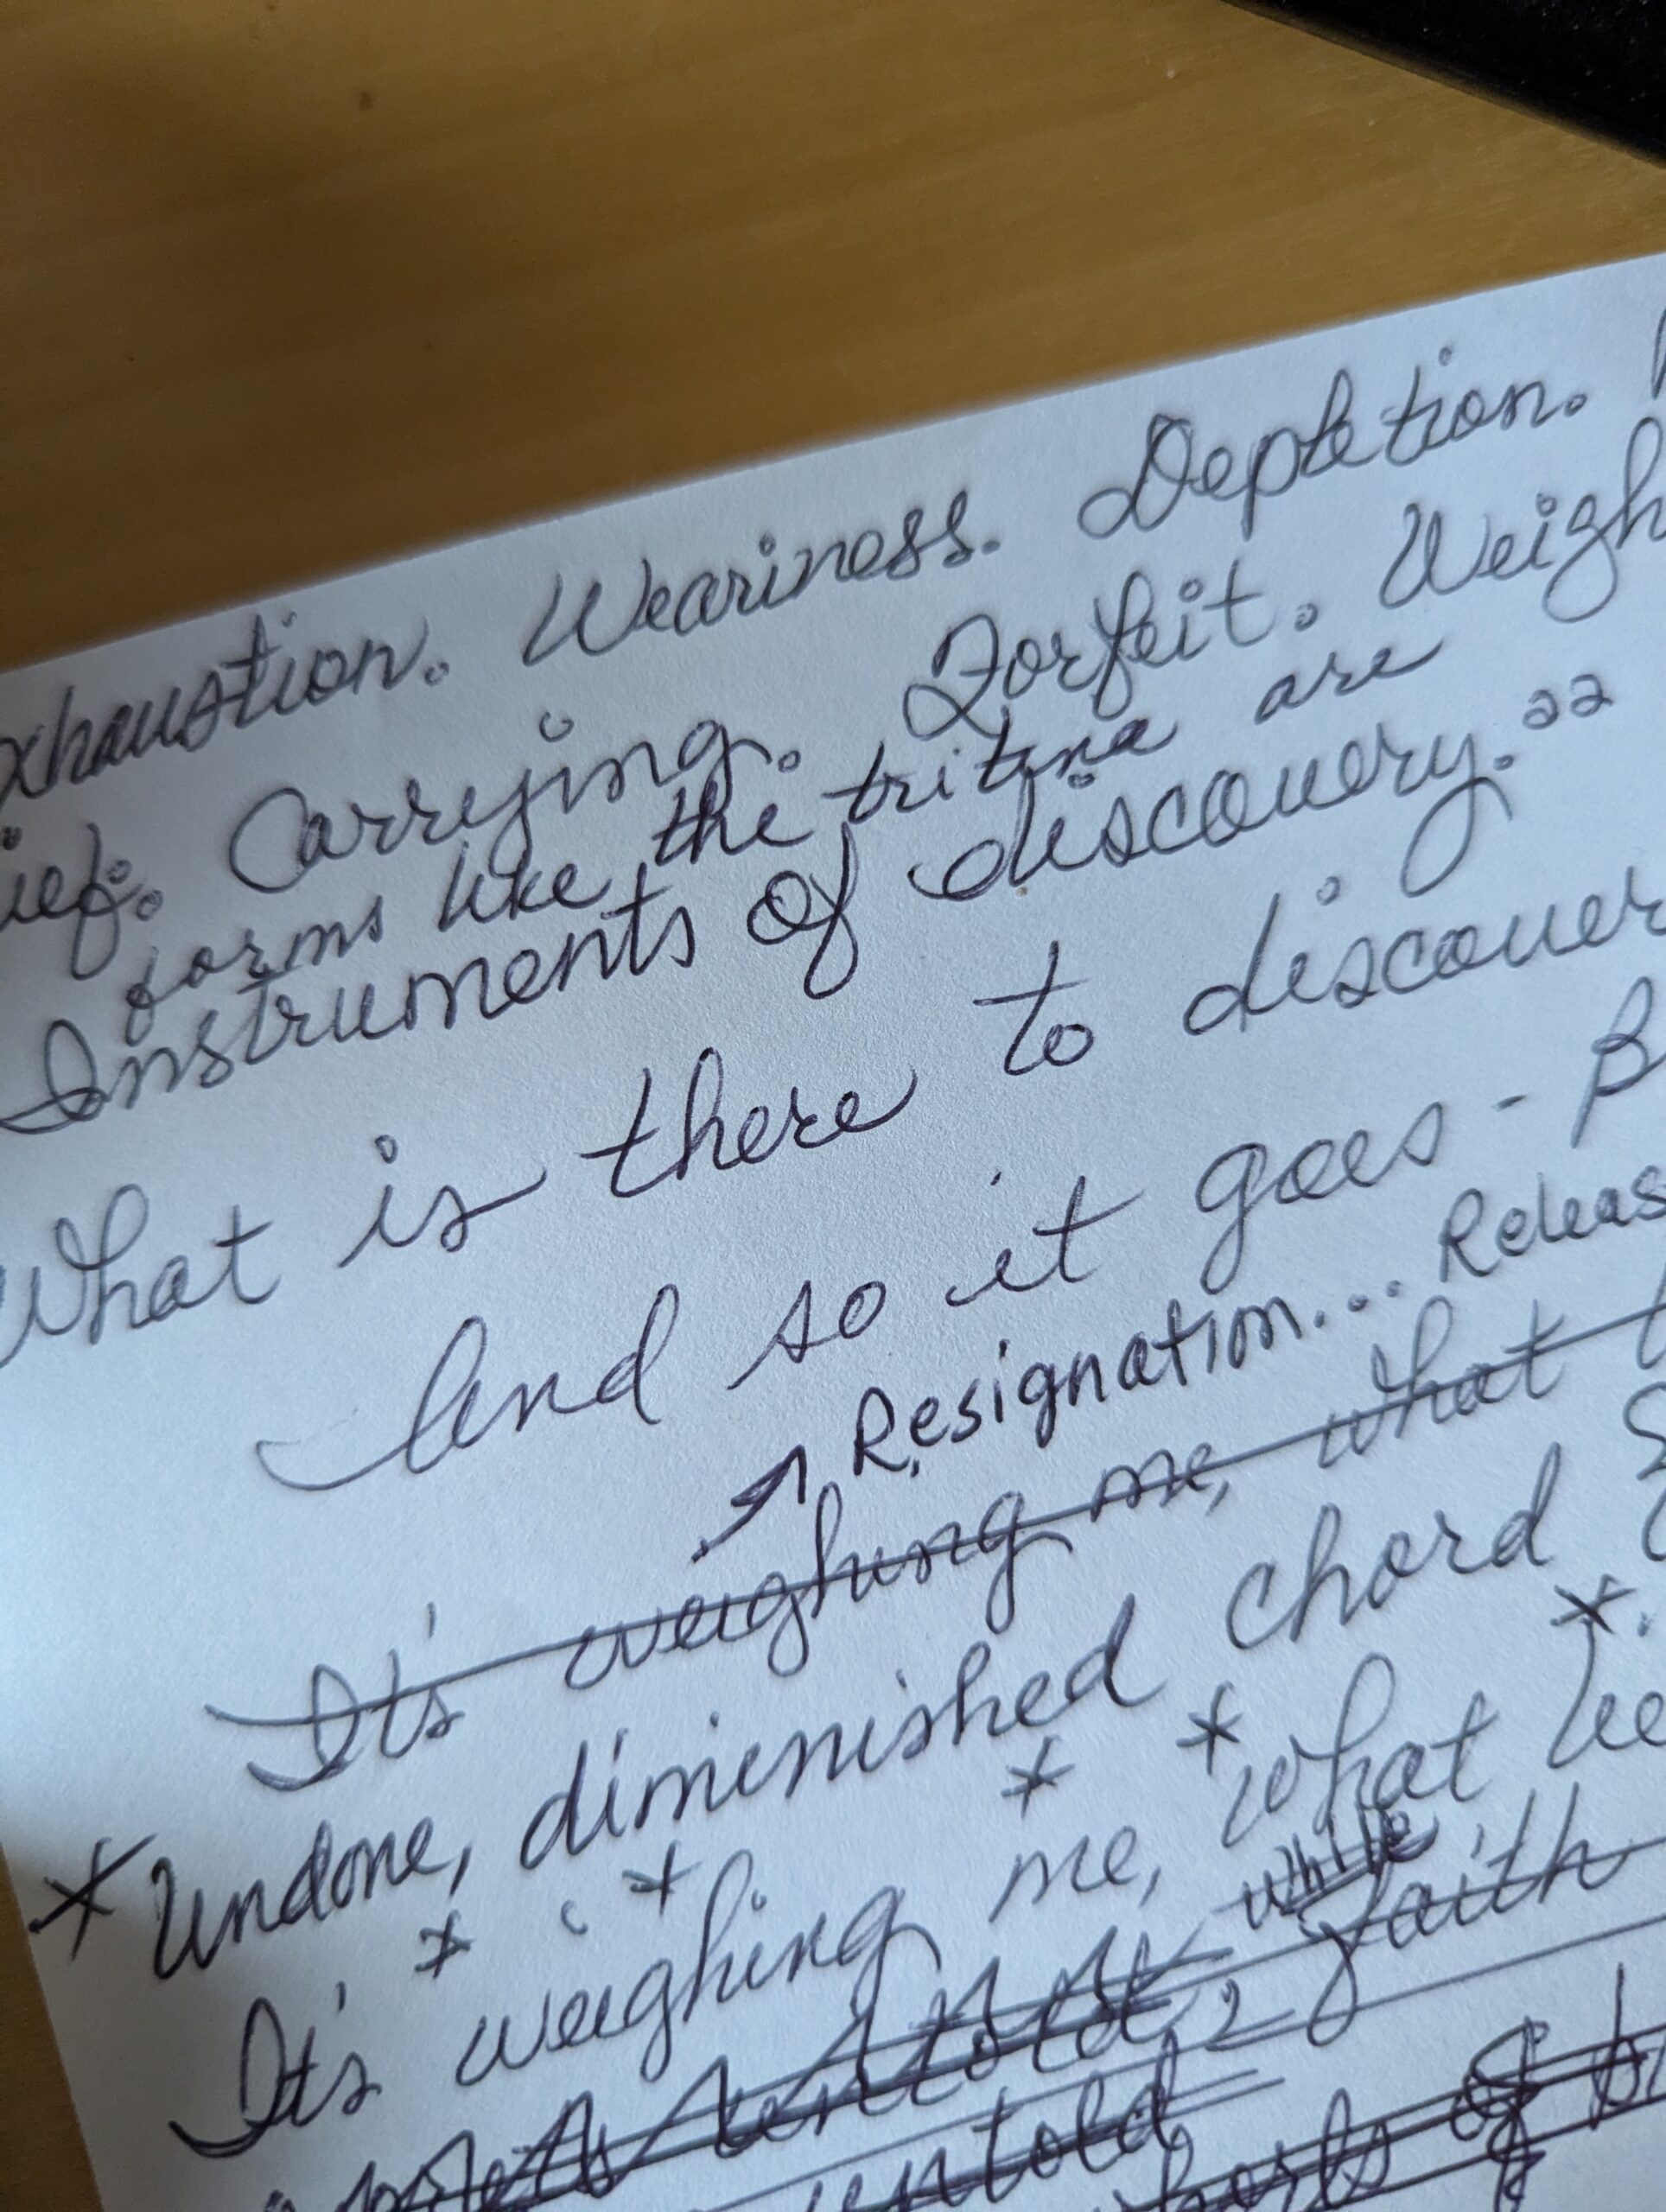 xhaustion. Weariness. Depletion.
ief. Carrying. Forfeit. Weigh
forms like the tritina are
Instruments of discovery."
What is there to discover
And so it goes - B
Resignation... Releas
It's weighing me, what
* Undone, diminished chord
It's weighing me, what lie
untold, while faith
untold
of bl